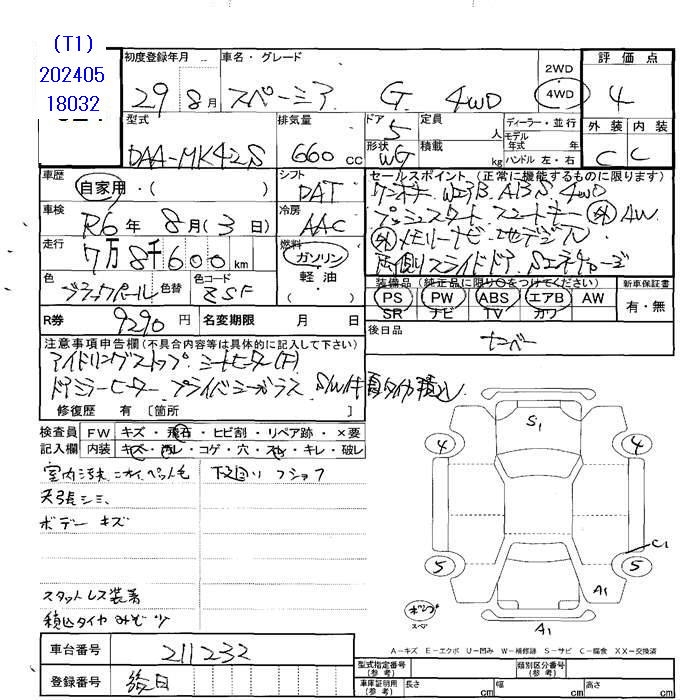 (T1)
202405
18032
初度登録年月 車名・グレード 2WD 評価点
29 8月 スペーシア G 4WD 4WD 4
型式 排気量 ドア 5 定員 人 ディーラー・並行 外装 内装
DAA-MK42S 660 cc 形状 WG 積載 kg モデル年式 年
ハンドル 左・右 C C
車歴 自家用・( ) シフト DAT セールスポイント (正常に機能するものに限ります)
車検 R6年 8月(3日) 冷房 AAC プッシュスタート スマートキー 外 AW
走行 7万8千600km 燃料 ガソリン 外 メモリーナビ 地デジ
軽油 ( ) 両側スライドドア Sエネチャージ
色 ブラックパール 色替 色コード ZSF 装備品 (純正品に限り○をつけてください) 新車保証書
PS PW ABS エアB AW 有・無
SR ナビ TV カワ
R券 9290円 名変期限 月 日 後日品 ナンバー
注意事項申告欄(不具合内容等は具体的に記入して下さい)
アイドリングストップ シートヒーター(F)
ドアミラーヒーター プライバシーガラス S/W付 夏タイヤ積込
修復歴 有〔箇所 〕
検査員 FW キズ・飛石・ヒビ割・リペア跡・×要
記入欄 内装 キズ・汚レ・コゲ・穴・スレ・キレ・破レ
室内汚末 ニオイ、ペット毛 下廻り フショク
天張シミ、
ボデー キズ
スタットレス装着
積込タイヤ みぞ少
S1
4 4
5 5
C1
A1
A1
ボンプ
スペア
A-キズ E-エクボ U-凹み W-補修跡 S-サビ C-腐食 XX-交換済
車台番号 211232
登録番号 後日
型式指定番号(参考) 類別区分番号(参考)
車庫証明用(参考) 長さ cm 幅 cm 高さ cm